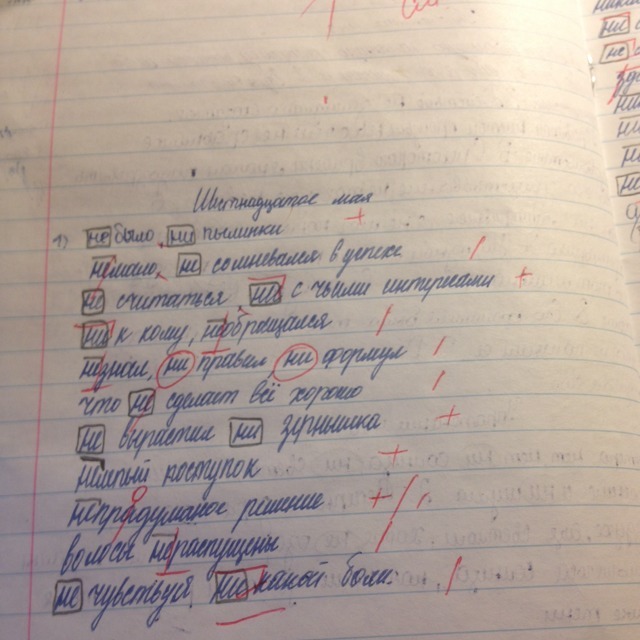 Шестнадцатое мая
1) не было, ни пылинки +
немало, не сомневался в успехе /
не считаться, ни с чьими интересами +
ни к кому, необращался /
незнал, ни правил, ни формул /
что не сделает всё хорошо /
не вырастил ни зёрнышка +
нелепый поступок +
непродуманое решение +/
волосы нераспущены /
не чувствуя, ни какой боли. /